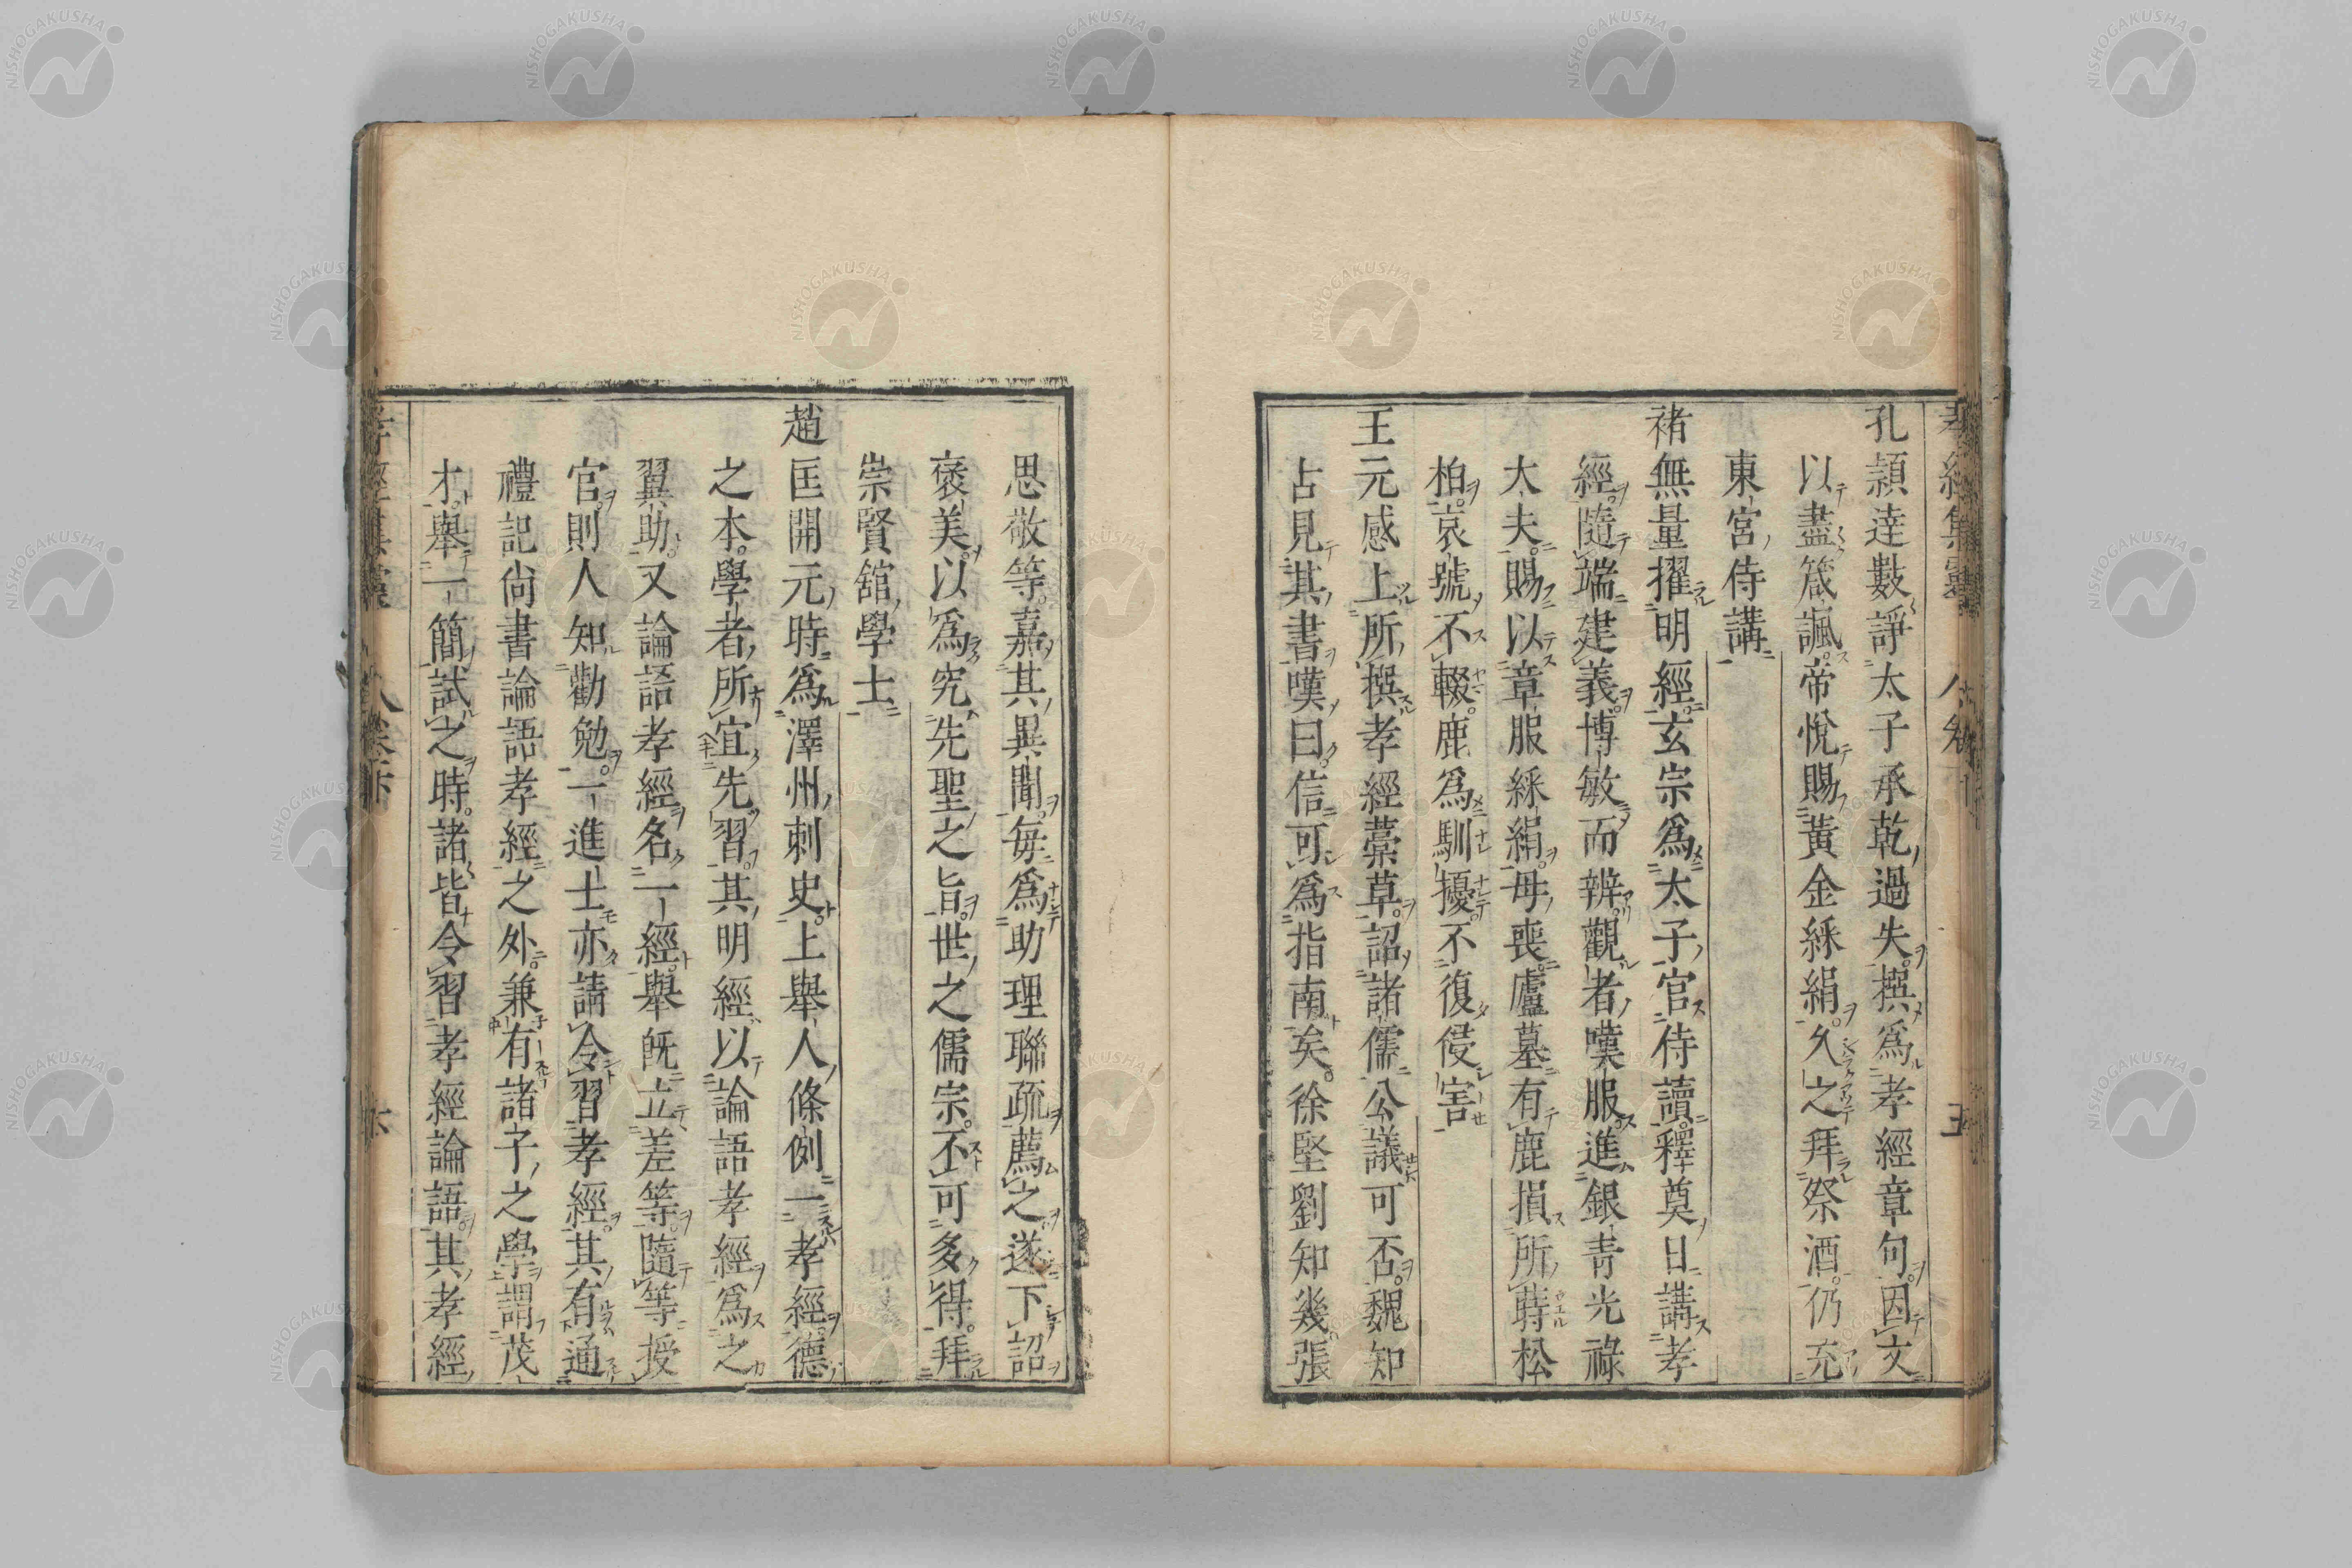 孔頴達數諍太子承乾過失撰為孝經章句因文
以盡箴諷帝悅賜黃金綵絹久之拜祭酒仍充
東宮侍講
禇無量擢明經玄宗為太子官侍讀釋奠日講孝
經隨端建義博敏而辨觀者嘆服進銀青光祿
大夫賜以章服綵絹母喪廬墓有鹿損所蒔松
柏哀號不輟鹿為馴擾不復侵害
王元感上所撰孝經藁草詔諸儒公議可否魏知
占見其書嘆曰信可為指南矣徐堅劉知幾張
思敬等嘉其異聞每為助理聯疏薦之遂下詔
褒美以為究先聖之旨世之儒宗不可多得拜
崇賢舘學士
趙匡開元時為澤州刺史上舉人條例一孝經德
之本學者所宜先習其明經以論語孝經為之
翼助又論語孝經名一經舉旣立差等隨等授
官則人知勸勉一進士亦請令習孝經其有通
禮記尚書論語孝經之外兼有諸子之學謂茂
才舉一簡試之時諸皆令習孝經論語其孝經
NISHOGAKUSHA